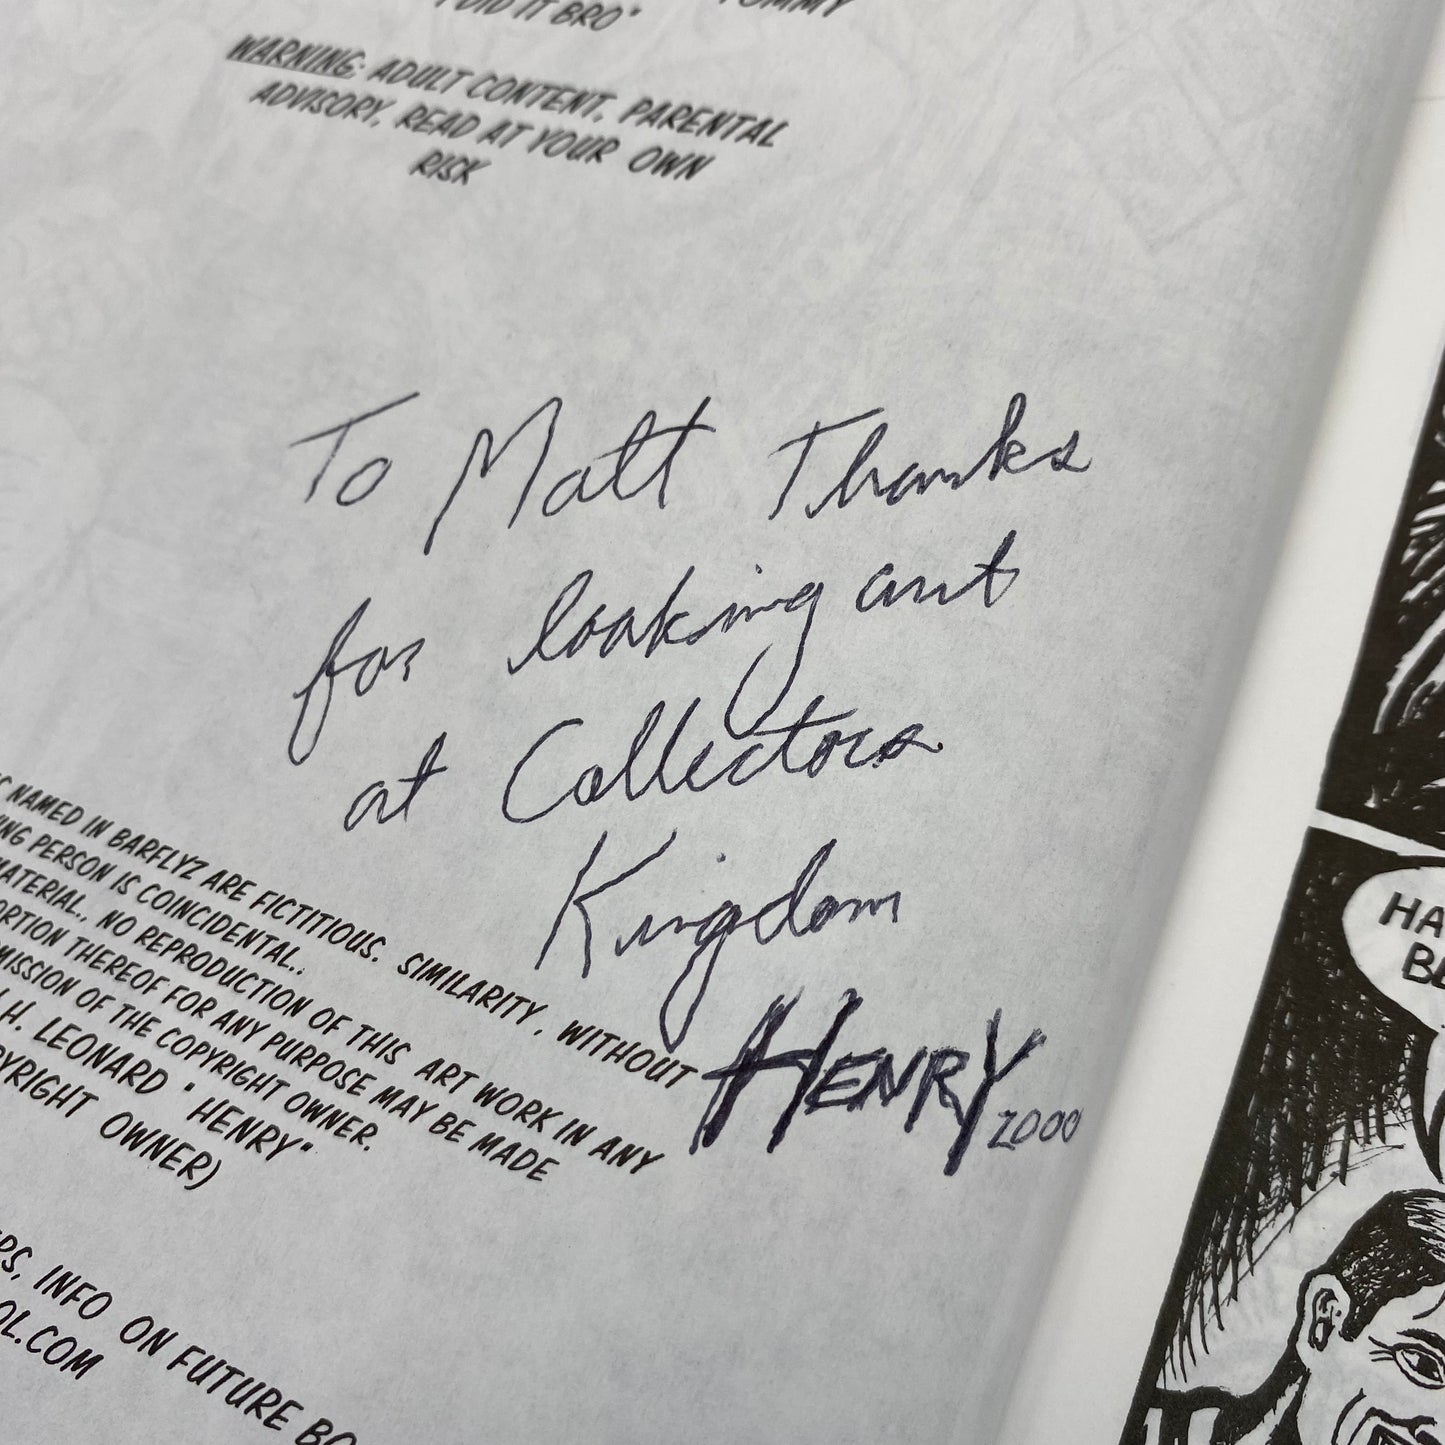 I DID IT BRO"
TOMMY
WARNING: ADULT CONTENT, PARENTAL
ADVISORY, READ AT YOUR OWN
RISK
To Matt Thanks
for looking out
at Collectors
Kingdom
HENRY 2000
NAMED IN BARFLYZ ARE FICTITIOUS. SIMILARITY, WITHOUT
PERSON IS COINCIDENTAL..
MATERIAL., NO REPRODUCTION OF THIS ART WORK IN ANY
THEREOF FOR ANY PURPOSE MAY BE MADE
OF THE COPYRIGHT OWNER.
H. LEONARD "HENRY"
OWNER)
INFO ON FUTURE
OL.COM
HA
BE